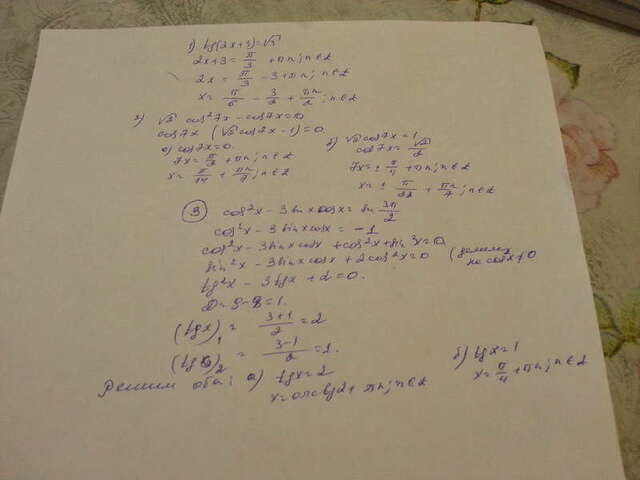 1) tg(2x+3)=√3
2x+3 = π/3 + πn; n∈Z
2x = π/3 - 3 + πn; n∈Z
x = π/6 - 3/2 + πn/2; n∈Z
2) √2 cos²7x - cos7x = 0
cos7x (√2 cos7x - 1) = 0
а) cos7x = 0.
7x = π/2 + πn; n∈Z
x = π/14 + πn/7; n∈Z
б) √2 cos7x = 1
cos7x = √2/2
7x = ± π/4 + πn; n∈Z
x = ± π/28 + πn/7; n∈Z
3) cos²x - 3sinx cosx = sin 3π/2
cos²x - 3sinx cosx = -1
cos²x - 3sinx cosx + cos²x + sin²x = 0
sin²x - 3sinx cosx + 2cos²x = 0 (делим на cosx≠0
tg²x - 3tgx + 2 = 0.
D = 9 - 8 = 1.
(tgx)₁ = 3+1/2 = 2
(tgx)₂ = 3-1/2 = 1.
Решим оба: а) tgx = 2
x = arctg2 + πn; n∈Z
б) tgx = 1
x = π/4 + πn; n∈Z